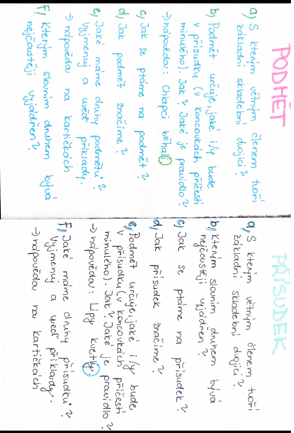 PODMĚT
a) S kterým větným členem tvoří
základní skladební dvojici?
b) Podmět určuje, jaké i/y bude
v přísudku (v koncovkách příčestí
minulého). Jak? Jaké je pravidlo?
→ nápověda: Chlapci běhali
c) Jak se ptáme na podmět?
d) Jak podmět značíme?
e) Jaké máme druhy podmětu?
Vyjmenuj a uveď příklady.
→ nápověda na kartičkách
f) Kterým slovním druhem bývá
nejčastěji vyjádřen?
PŘÍSUDEK
a) S kterým větným členem tvoří
základní skladební dvojici?
b) Kterým slovním druhem bývá
nejčastěji vyjádřen?
c) Jak se ptáme na přísudek?
d) Jak přísudek značíme?
e) Podmět určuje, jaké i/y bude
v přísudku (v koncovkách příčestí
minulého). Jak? Jaké je pravidlo?
→ nápověda: Lípy kvetly
f) Jaké máme druhy přísudku?
Vyjmenuj a uveď příklady.
→ nápověda na kartičkách